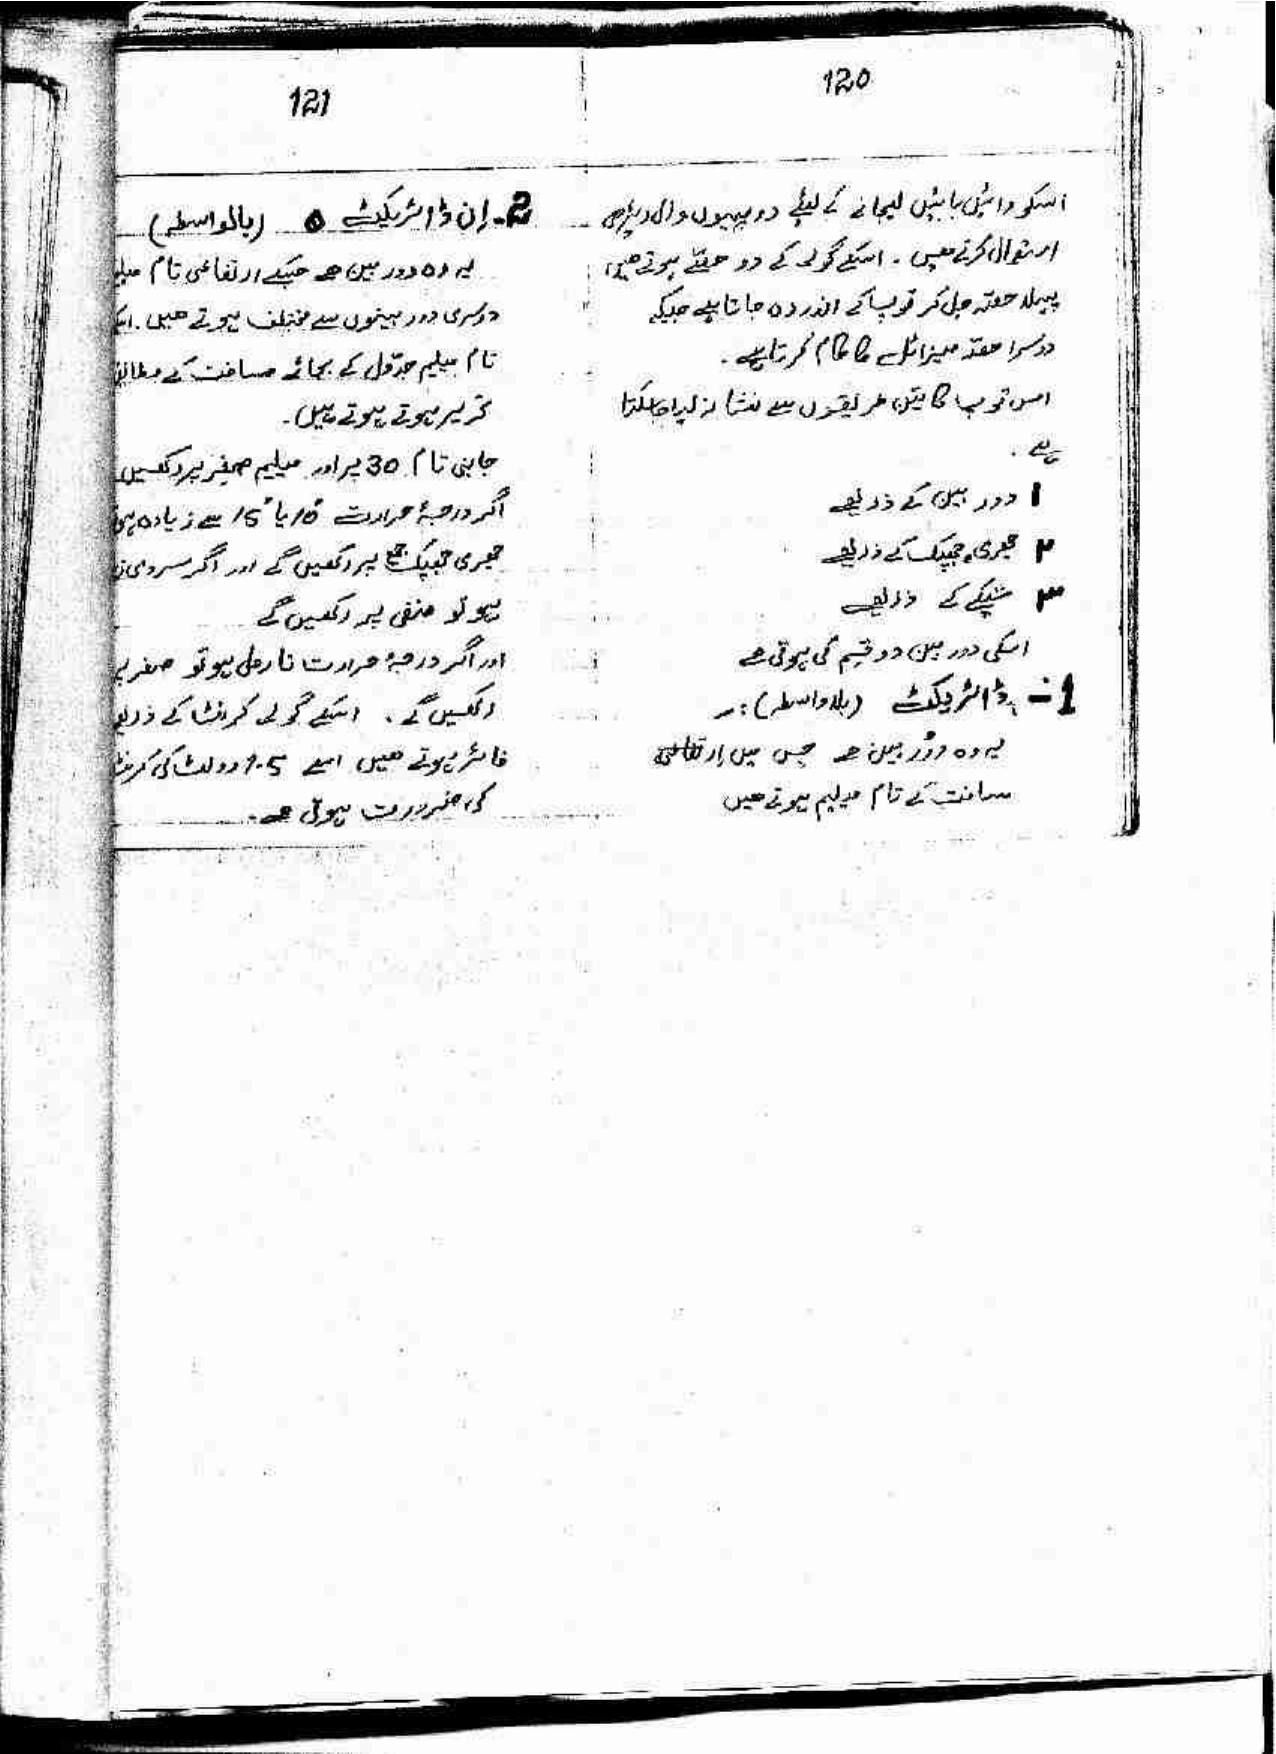 120
اسکو دائیں بائیں لیجانے کے لیئے دو پہیوں والی ریڑھی
استعمال کرتے ھیں . اسکے گولی کے دو حصّے ہوتے ھیں
پہلا حصّہ جل کر توپ کے اندر رہ جاتا ہے جبکہ
دوسرا حصّہ میزائل کا کام کرتا ہے .
اس توپ کا تین طریقوں سے نشانہ لیا جاسکتا
ہے .
۱ دور بین کے ذریعے
۲ کے ذریعے
۳ کے ذریعے
اسکی دور بین دو قسم کی ہوتی ھے
1- ڈائریکٹ (بلاواسطہ) :-
یہ وہ دور بین ھے جس میں ارتفاعی
مسافت کے نام میلیم ہوتے ھیں
121
2- اِن ڈائریکٹ (بالواسطہ)
یہ وہ دور بین ھے جسکے ارتفاعی نام
دوسری دوربینوں سے مختلف ہوتے ھیں .
نام میلیم جدول کے بجائے مسافت کے مطابق
تحریر ہوتے ہوتے ہیں .
جانبی نام 30 پر اور میلیم صفر پر رکھیں
اگر درجۂ حرارت 10° یا 15° سے زیادہ
جمع پر رکھیں گے اور اگر سردی
ہو تو منفی پر رکھیں گے
اور اگر درجۂ حرارت نارمل ہو تو صفر پر
رکھیں گے . اسکے گولے کرنٹ کے ذریعے
فائر ہوتے ھیں اسے 1.5 وولٹ کی کرنٹ
کی ضرورت ہوتی ھے .